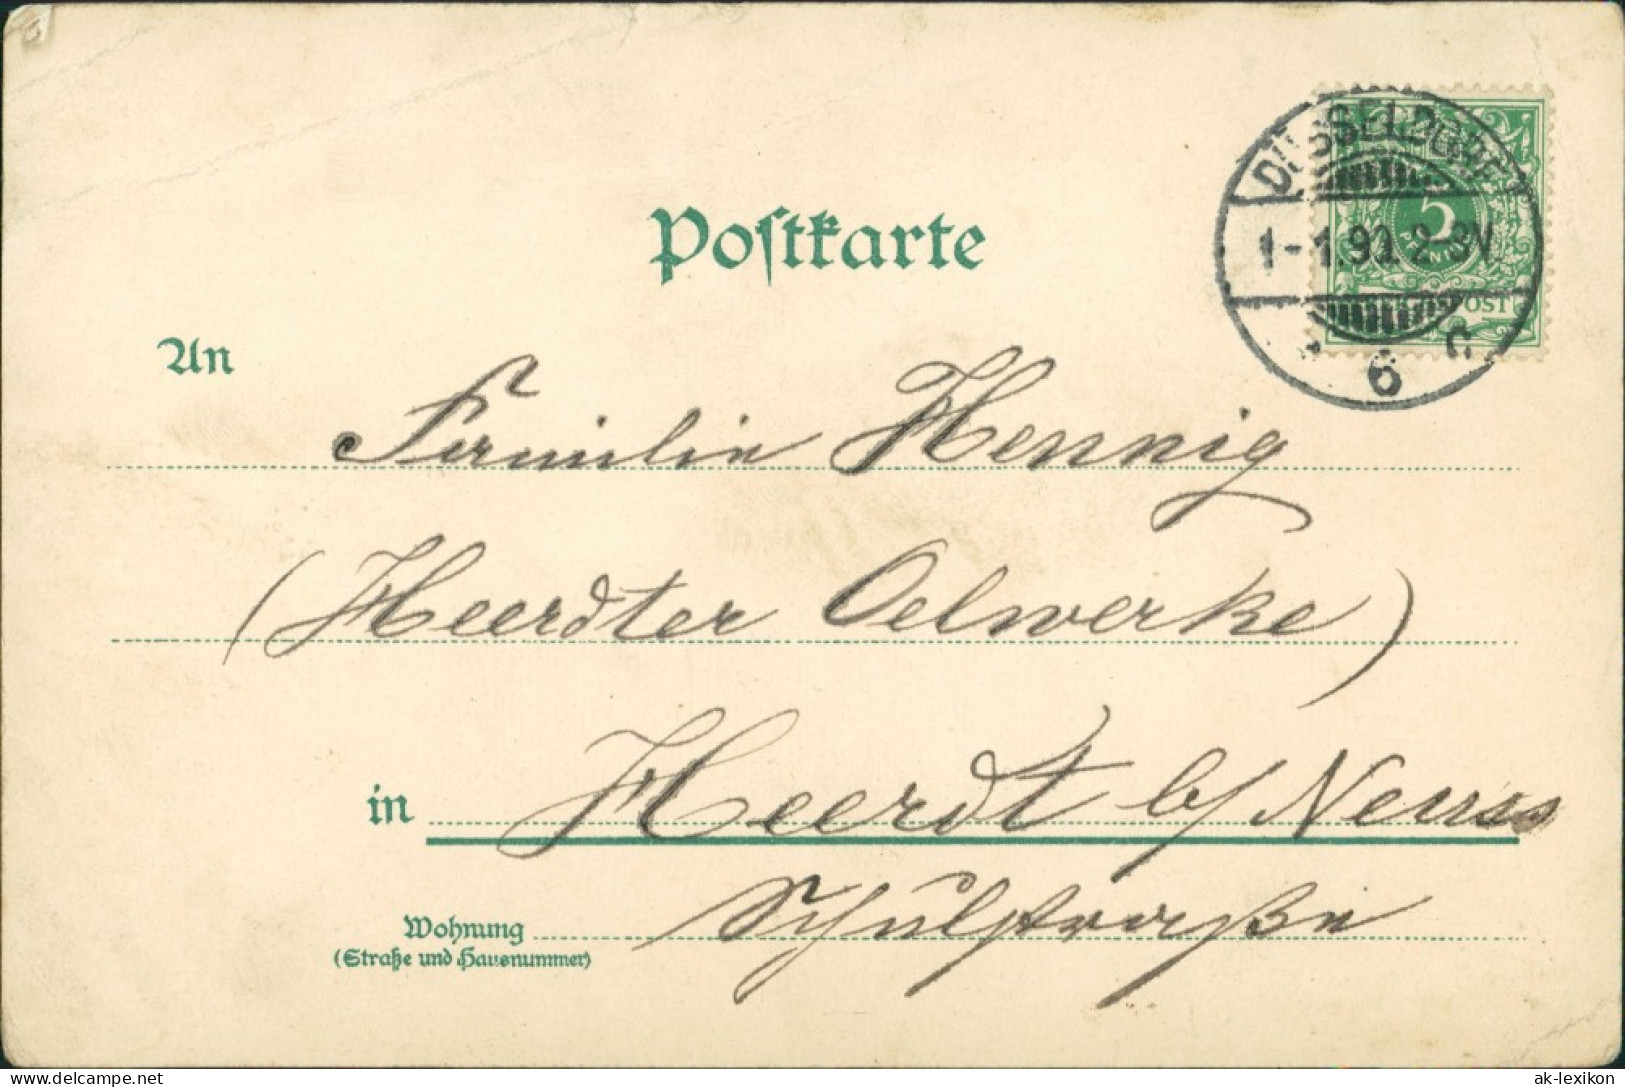 Postkarte
DÜSSELDORF
1-1.90. 2-3V
6 c
5
PFENNIG
POST
An Familie Hennig
(Heerdter Oelwerke)
in Heerdt b/ Neuss
Wohnung Schulstraße
(Straße und Hausnummer)
Delcampe.net
ak-lexikon